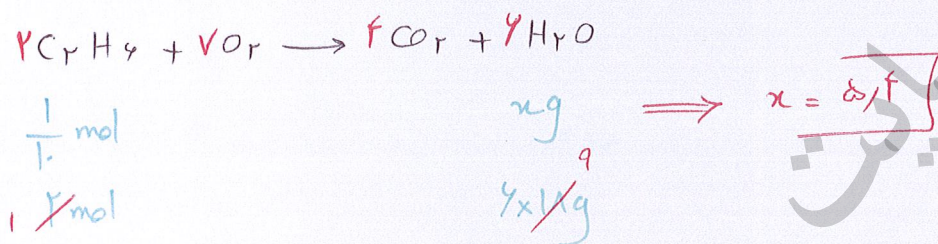 ۲C۲H۶ + ۷O۲ ⟶ ۴CO۲ + ۶H۲O
۱/۱۰ mol xg ⟹ x = ۵/۴
۱ ۲mol ۶×۱۸g ۹